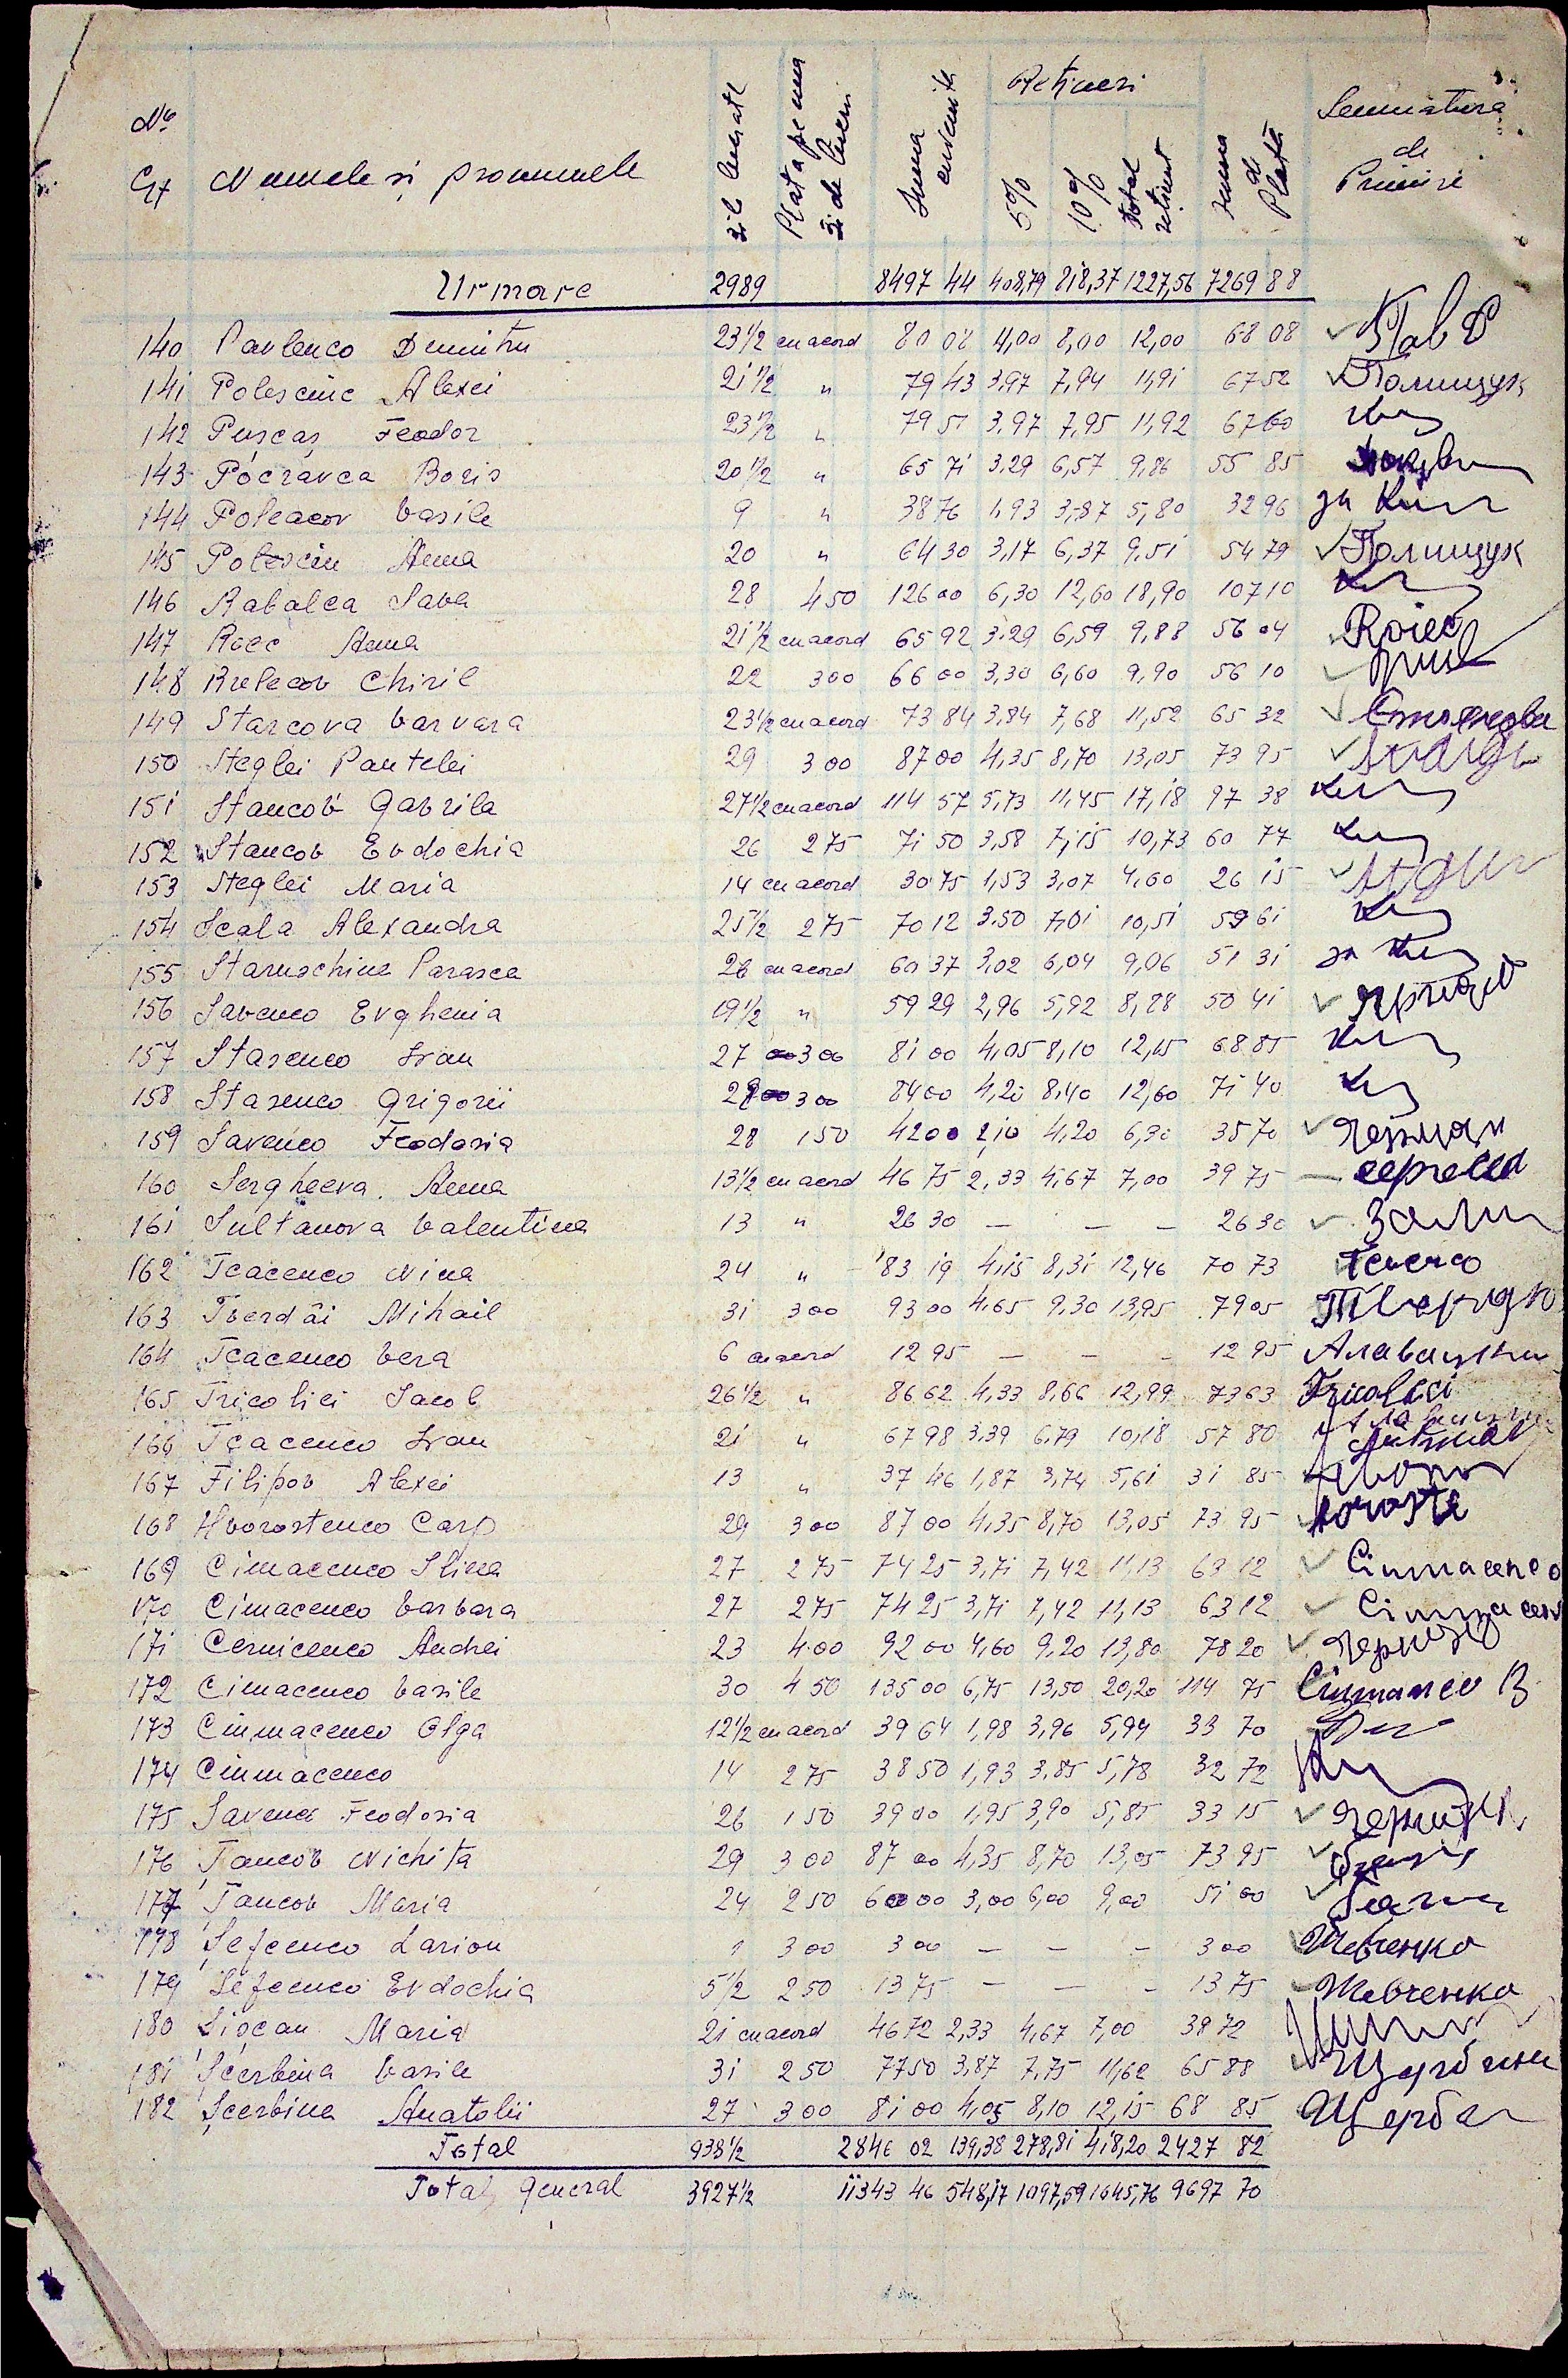 No Crt Numele și pronumele zile lucrate Plata pe una zi de lucru Suma cuvenită Rețineri 5% 10% Total reținut Suma de Plată Semnatura de Primire
Urmare 2989 8497 44 408,79 818,37 1227,56 7269 88
140 Pavlenco Dumitru 23 1/2 cu acord 80 08 4,00 8,00 12,00 68 08
141 Polesciuc Alexei 21 1/2 " 79 43 3,97 7,94 11,91 67 52 Полищук
142 Pușcaș Feodor 23 1/2 " 79 51 3,97 7,95 11,92 67 60
143 Pocravca Boris 20 1/2 " 65 71 3,29 6,57 9,86 55 85
144 Poleacov Vasile 9 " 38 76 1,93 3,87 5,80 32 96 за
145 Polesciu Anna 20 " 64 30 3,17 6,37 9,51 54 79 Полищук
146 Rabalca Sava 28 4 50 126 00 6,30 12,60 18,90 107 10
147 Roec Anna 21 1/2 cu acord 65 92 3,29 6,59 9,88 56 04 Roiec
148 Rulecov Chiril 22 3 00 66 00 3,30 6,60 9,90 56 10
149 Starcova Varvara 23 1/2 cu acord 73 84 3,84 7,68 11,52 65 32
150 Steglei Pantelei 29 3 00 87 00 4,35 8,70 13,05 73 95
151 Stancov Gavrila 27 1/2 cu acord 114 57 5,73 11,45 17,18 97 38
152 Stancov Evdochia 26 2 75 71 50 3,58 7,15 10,73 60 77
153 Steglei Maria 14 cu acord 30 75 1,53 3,07 4,60 26 15
154 Scala Alexandra 25 1/2 2 75 70 12 3,50 7,01 10,51 59 61
155 Staruschina Parasca 26 cu acord 60 37 3,02 6,04 9,06 51 31 за
156 Savenco Evghenia 19 1/2 " 59 29 2,96 5,92 8,88 50 41
157 Stasenco Ivan 27 3 00 81 00 4,05 8,10 12,15 68 85
158 Stasenco Grigorii 28 3 00 84 00 4,20 8,40 12,60 71 40
159 Savenco Feodosia 28 1 50 42 00 2,10 4,20 6,30 35 70
160 Sergheeva Anna 13 1/2 cu acord 46 75 2,33 4,67 7,00 39 75
161 Sultanova Valentina 13 " 26 30 — — — 26 30
162 Tcacenco Nina 24 " 83 19 4,15 8,31 12,46 70 73
163 Tverdâi Mihail 31 3 00 93 00 4,65 9,30 13,95 79 05
164 Tcacenco Vera 6 cu acord 12 95 — — — 12 95
165 Tricolici Iacob 26 1/2 " 86 62 4,33 8,66 12,99 73 63 Tricolici
166 Tcacenco Ivan 21 " 67 98 3,39 6,79 10,18 57 80
167 Filipov Alexei 13 " 37 46 1,87 3,74 5,61 31 85
168 Hvorostenco Carp 29 3 00 87 00 4,35 8,70 13,05 73 95
169 Cimacenco Ilina 27 2 75 74 25 3,71 7,42 11,13 63 12 Cimacenco
170 Cimacenco Varvara 27 2 75 74 25 3,71 7,42 11,13 63 12
171 Cernicenco Andrei 23 4 00 92 00 4,60 9,20 13,80 78 20
172 Cimacenco Vasile 30 4 50 135 00 6,75 13,50 20,20 114 75
173 Cimmacenco Olga 12 1/2 cu acord 39 64 1,98 3,96 5,94 33 70
174 Cimmacenco 14 2 75 38 50 1,93 3,85 5,78 32 72
175 Savenco Feodosia 26 1 50 39 00 1,95 3,90 5,85 33 15
176 Țancov Nichita 29 3 00 87 00 4,35 8,70 13,05 73 95
177 Țancov Maria 24 2 50 60 00 3,00 6,00 9,00 51 00
178 Șefcenco Larion 1 3 00 3 00 — — — 3 00 Шевченко
179 Șefcenco Evdochia 5 1/2 2 50 13 75 — — — 13 75 Шевченко
180 Șișcan Maria 21 cu acord 46 72 2,33 4,67 7,00 39 72
181 Șcerbina Vasile 31 2 50 77 50 3,87 7,75 11,62 65 88 Щербина
182 Șcerbina Anatolii 27 3 00 81 00 4,05 8,10 12,15 68 85
Total 938 1/2 2846 02 139,38 278,81 418,20 2427 82
Total general 3927 1/2 11343 46 548,17 1097,59 1645,76 9697 70